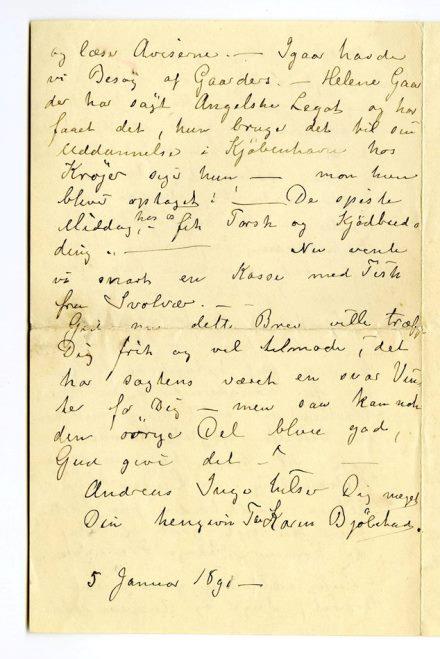 og læser Aviserne. — Igaar havde
vi Besøg af Gaarders. — Helene Gaar
der har søgt Angelske Legat og har
faaet det, hun bruger det til sin
Uddannelse i Kjøbenhavn hos
Krøjer siger hun — mon hun
bliver optaget! — De spiste
Middag hos os — fik Torsk og Kjødbud
ding — Nu venter
vi snart en Kasse med Fisk
fra Svolvær. —
Gud nu dette Brev ville træffe
Dig frisk og vel tilmode, det
har sagtens været en svær Vin
ter for Dig — men saa kan nok
den øvrige Del blive god,
Gud give det —
Andreas Inge hilser Dig meget
Din hengivne Karen Bjölstad.
5 Januar 1890 —